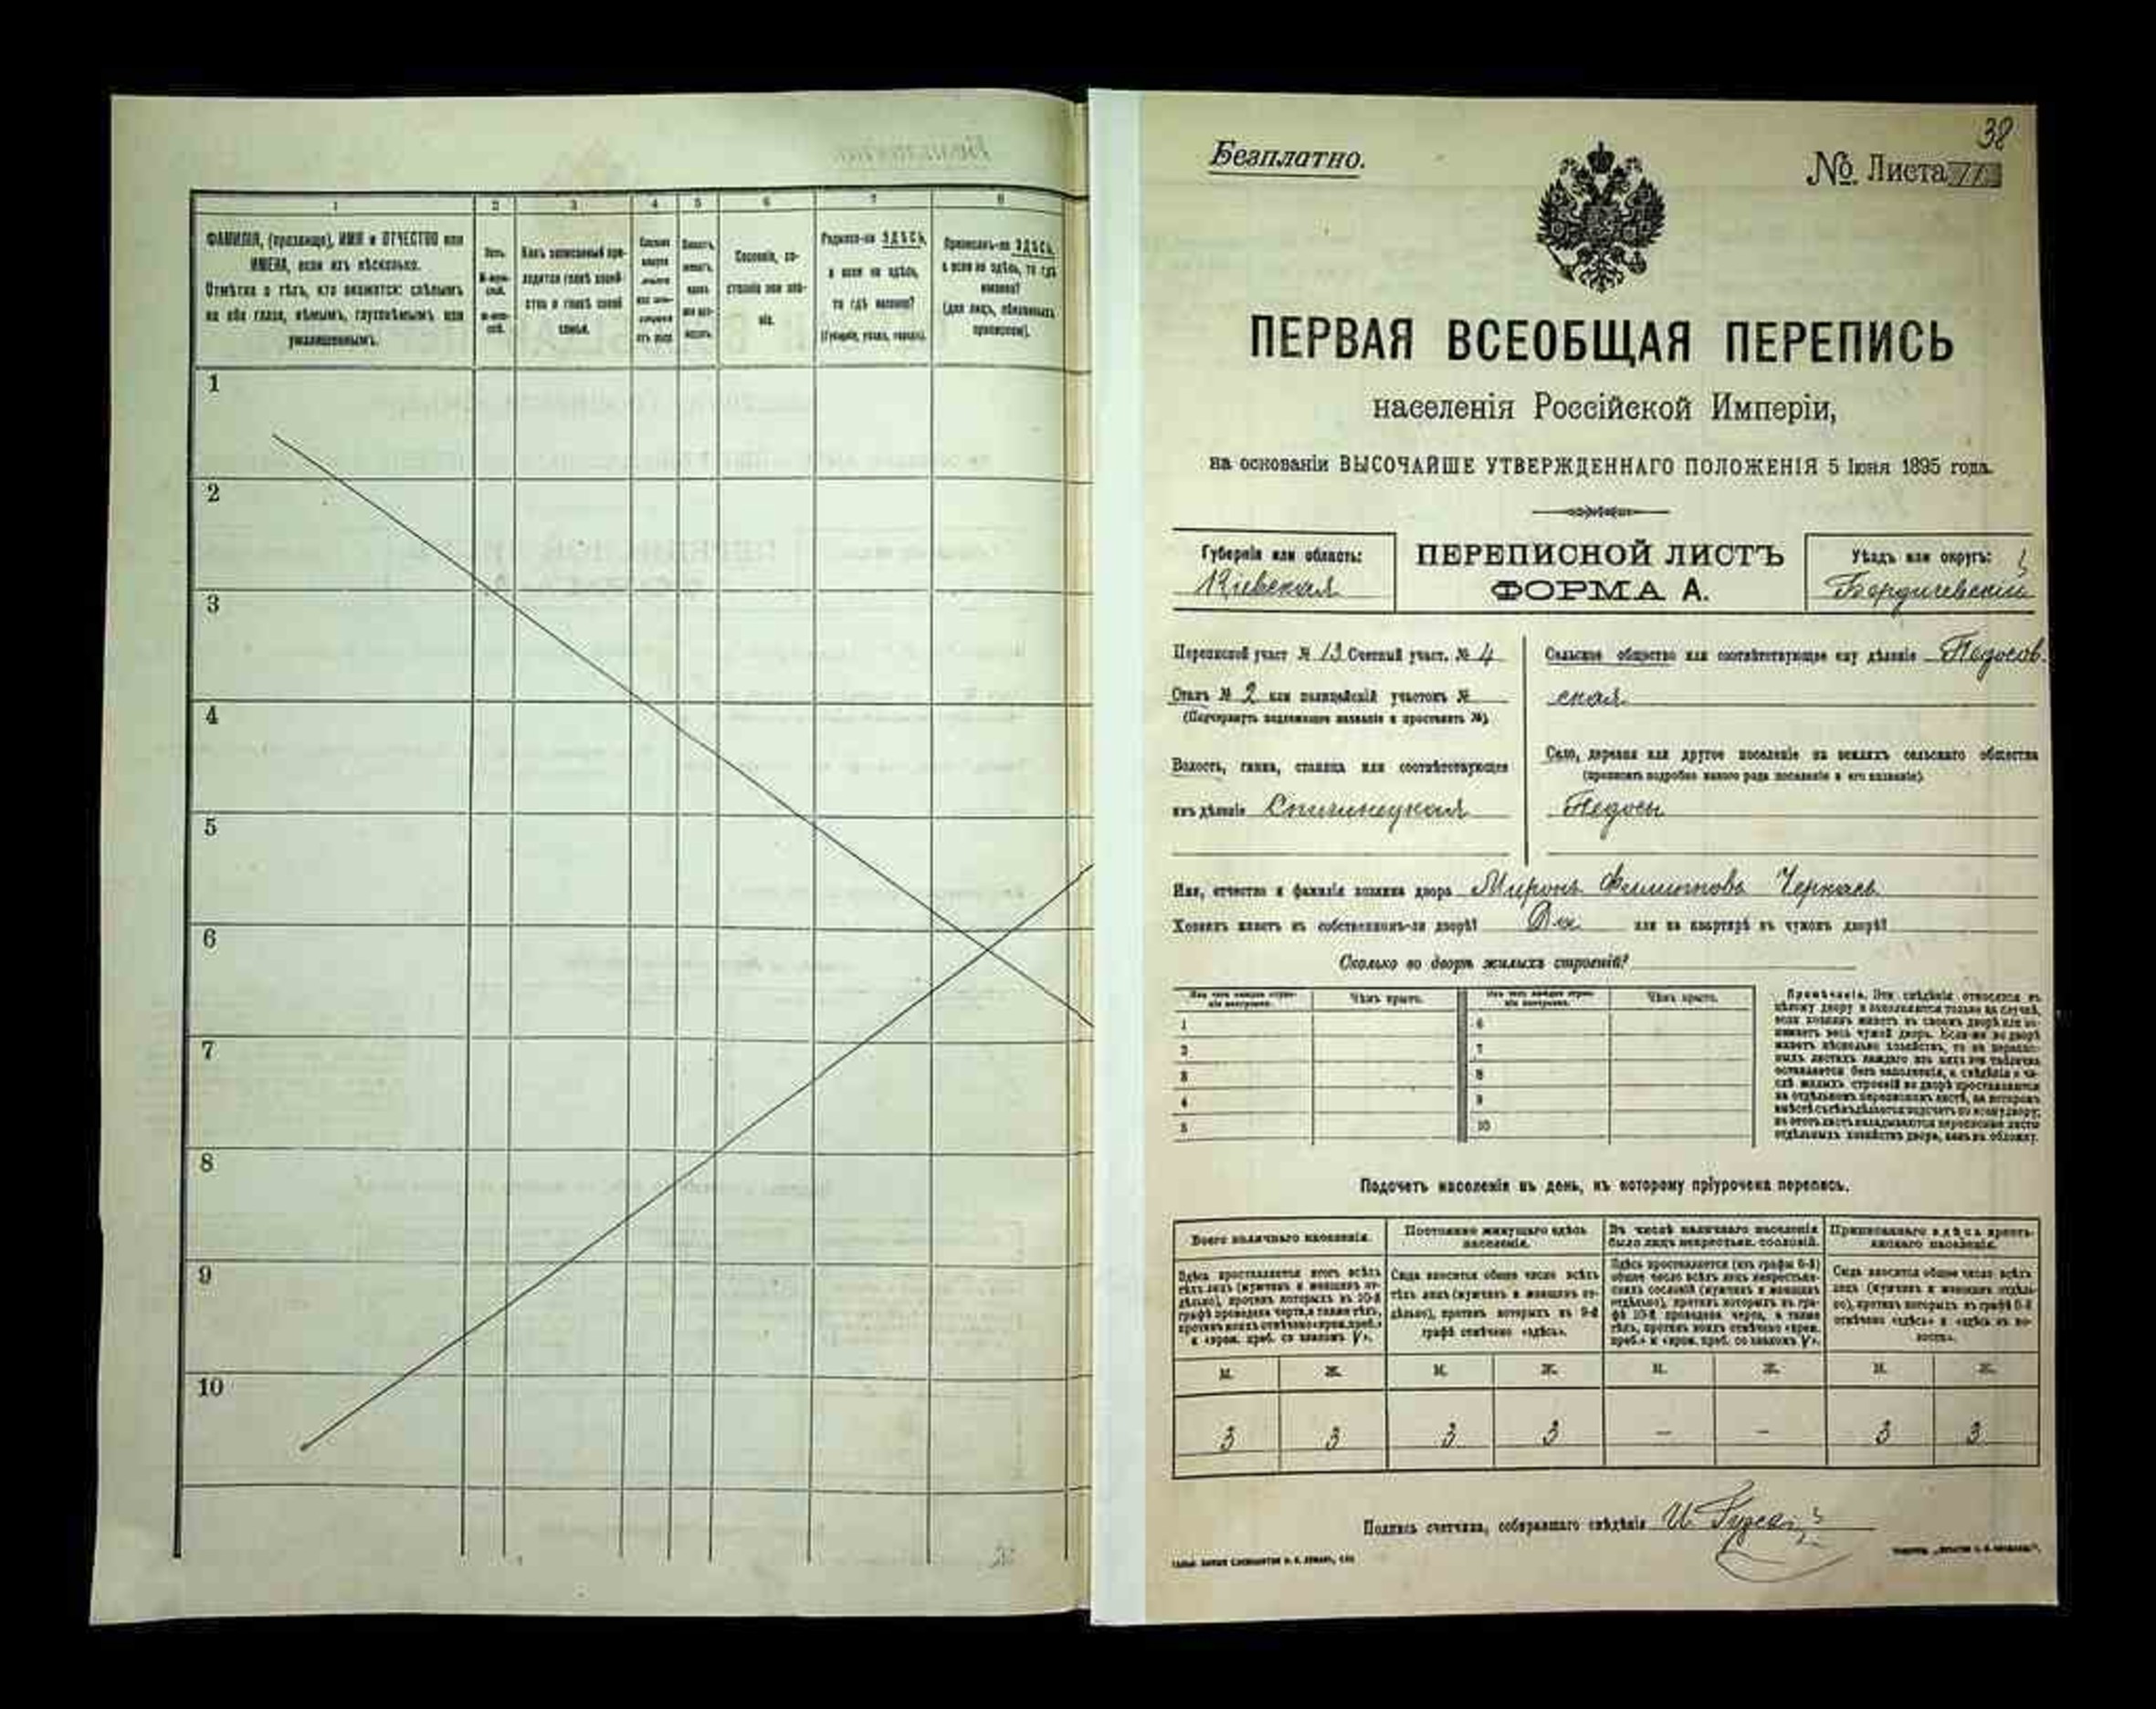 1 2 3 4 5 6 7 8
ФАМИЛІЯ, (прозвище), ИМЯ и ОТЧЕСТВО или
ИМЕНА, если ихъ нѣсколько.
Отмѣтка о тѣхъ, кто окажется: слѣпымъ
на оба глаза, нѣмымъ, глухонѣмымъ или
умалишеннымъ.
Полъ.
Какъ записанный при-
ходится главѣ хозяй-
ства и главѣ своей
семьи.
Сословіе, со-
стояніе или зва-
ніе.
Родился-ли ЗДѢСЬ,
а если не здѣсь,
то гдѣ именно?
(Губернія, уѣздъ, городъ).
Приписанъ-ли ЗДѢСЬ,
а если не здѣсь, то гдѣ
именно?
(для лицъ, обязанныхъ
припискою).
1
2
3
4
5
6
7
8
9
10
38
Безплатно.
№ Листа
ПЕРВАЯ ВСЕОБЩАЯ ПЕРЕПИСЬ
населенія Россійской Имперіи,
на основаніи ВЫСОЧАЙШЕ УТВЕРЖДЕННАГО ПОЛОЖЕНІЯ 5 Іюня 1895 года.
Губернія или область:
Кіевская
ПЕРЕПИСНОЙ ЛИСТЪ
ФОРМА А.
Уѣздъ или округъ:
Бердичевскій
Переписной участ № 13 Счетный участ. № 4
Станъ № 2 или полицейскій участокъ №
(Подчеркнуть надлежащее названіе и проставить №).
Волость, гмина, станица или соотвѣтствующее
имъ дѣленіе Спичинецкая
Сельское общество или соотвѣтствующее ему дѣленіе Педосов-
ская
Село, деревня или другое поселеніе на земляхъ сельскаго общества
(прописать подробно какого рода поселеніе и его названіе).
Педосы
Имя, отчество и фамилія хозяина двора Миронъ Филимоновъ Черкасъ
Хозяинъ живетъ въ собственномъ-ли дворѣ? Да или на квартирѣ въ чужомъ дворѣ?
Сколько во дворѣ жилыхъ строеній?
Изъ чего каждое строе-
ніе построено.
Чѣмъ крыто.
Изъ чего каждое строе-
ніе построено.
Чѣмъ крыто.
1 6
2 7
3 8
4 9
5 10
Примѣчаніе. Эти свѣдѣнія относятся къ
цѣлому двору и заполняются только въ случаѣ,
если хозяинъ живетъ въ своемъ дворѣ или за-
нимаетъ весь чужой дворъ. Если-же во дворѣ
живетъ нѣсколько хозяйствъ, то на перепис-
ныхъ листахъ каждаго изъ нихъ эта табличка
оставляется безъ заполненія, а свѣдѣнія о чи-
слѣ жилыхъ строеній во дворѣ проставляются
на отдѣльномъ переписномъ листѣ, на которомъ
вмѣстѣ съ тѣмъ дѣлается подсчетъ по всему двору;
въ этотъ листъ вкладываются переписные листы
отдѣльныхъ хозяйствъ двора, какъ въ обложку.
Подсчетъ населенія въ день, къ которому пріурочена перепись.
Всего наличнаго населенія.
Постоянно живущаго здѣсь
населенія.
Въ числѣ наличнаго населенія
было лицъ некрестьян. сословій.
Приписаннаго здѣсь кресть-
янскаго населенія.
Здѣсь проставляется итогъ всѣхъ
тѣхъ лицъ (мужчинъ и женщинъ от-
дѣльно), противъ которыхъ въ 10-й
графѣ проведена черта, а также тѣхъ,
противъ коихъ отмѣчено «врем. преб.»
и «врем. преб. со знакомъ V».
Сюда вносится общее число всѣхъ
тѣхъ лицъ (мужчинъ и женщинъ от-
дѣльно), противъ которыхъ въ 9-й
графѣ отмѣчено «здѣсь».
Здѣсь проставляется (изъ графы 6-й)
общее число всѣхъ лицъ некрестьян-
скихъ сословій (мужчинъ и женщинъ
отдѣльно), противъ которыхъ въ гра-
фѣ 10-й проведена черта, а также
тѣхъ, противъ коихъ отмѣчено «врем.
преб.» и «врем. преб. со знакомъ V».
Сюда вносится общее число всѣхъ
лицъ (мужчинъ и женщинъ отдѣль-
но), противъ которыхъ въ графѣ 8-й
отмѣчено «здѣсь» и «здѣсь въ во-
лости».
М. Ж. М. Ж. М. Ж. М. Ж.
3 3 3 3 – – 3 3
Подпись счетчика, собиравшаго свѣдѣнія И.